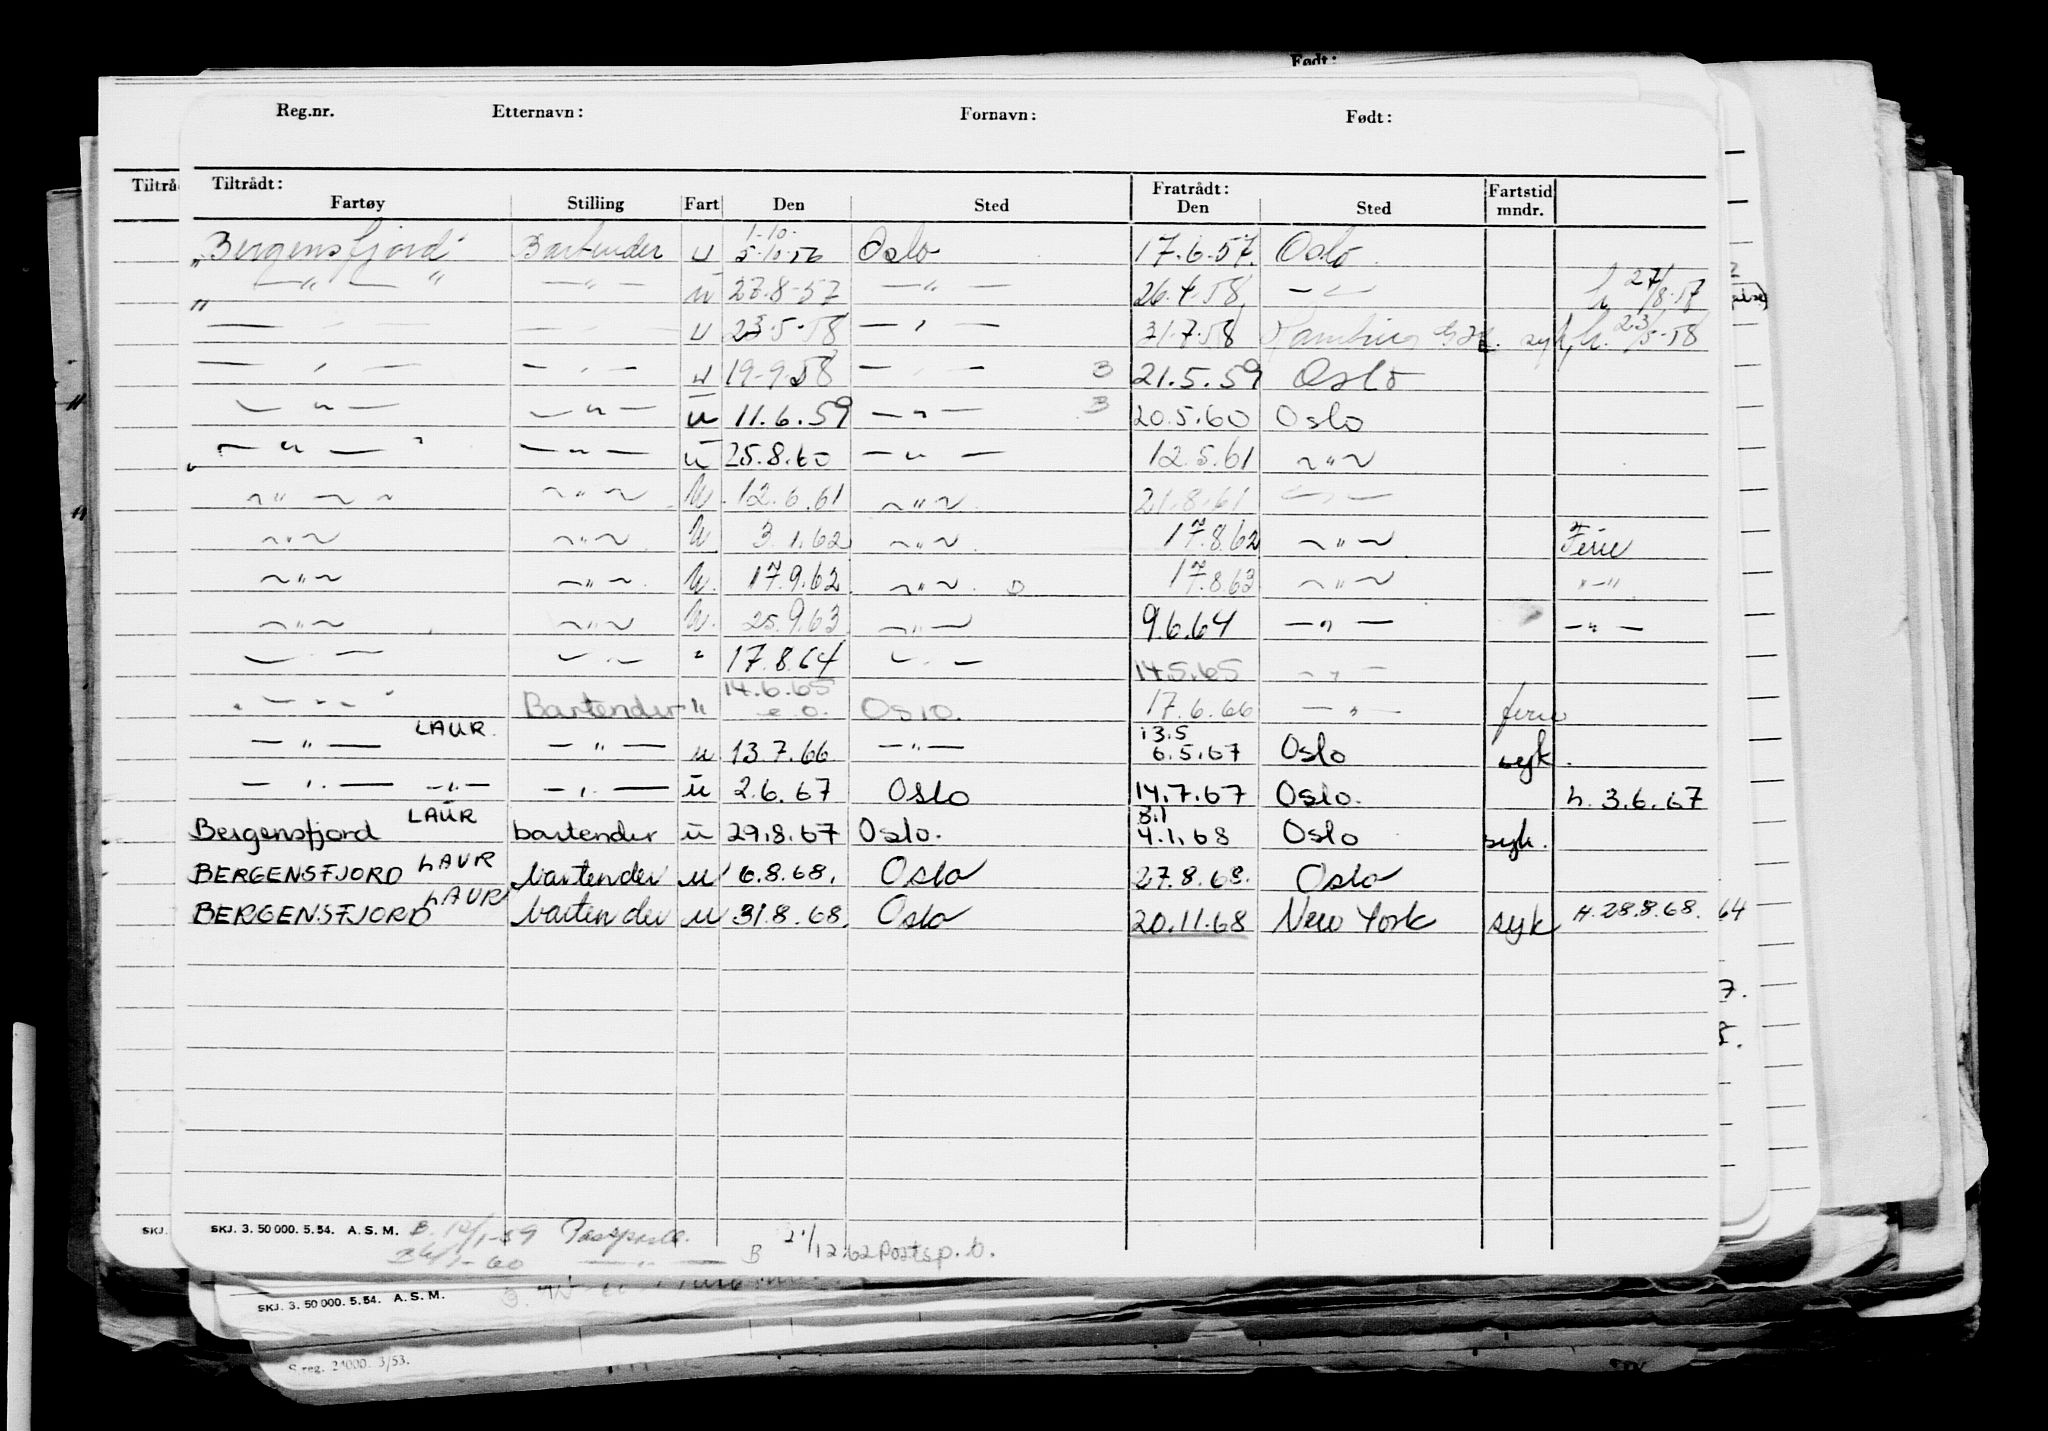 Født:
Reg.nr. Etternavn: Fornavn: Født:
Tiltrå Tiltrådt: Fratrådt: Fartstid
Fartøy Stilling Fart Den Sted Den Sted mndr.
1-10-
"Bergensfjord" Bartender u 5-10-56 Oslo 17.6.57. Oslo
— " — " — " — u 27.8-57 — " — 26.4.58, — " — h 27/8.57
— " — — " — u 23.5-58 — " — 31.7.58 syk, h. 23/5-58
— " — — " — u 19-9-58 — " — B 21.5.59 Oslo
— " — — " — u 11.6.59 — " — B 20.5.60 Oslo
— " — — " — u 25.8.60 — " — 12.5.61 — " —
— " — — " — u. 12.6.61 — " — 21.8.61 — " —
— " — — " — u 3.1.62 — " — 17.8.62 — " — Ferie
— " — — " — u. 17.9.62 — " — D 17.8.63 — " — " — "
— " — — " — u. 25.9.63 — " — 9.6.64 — " — — " —
— " — — " — " 17.8.64 — " — 14.5.65 — " —
14.6.65
— " — Bartender " e.o. Oslo. 17.6.66 — " — ferie
LAUR. 13.5
— " — — " — u 13.7.66 — " — 6.5.67 Oslo syk.
— " — — " — — " — u 2.6.67 Oslo 14.7.67 Oslo. h. 3.6.67
LAUR 3.1
Bergensfjord bartender u 29.8.67 Oslo. 4.1.68 Oslo syk.
BERGENSFJORD LAUR bartender u 6.8.68. Oslo 27.8.68. Oslo
BERGENSFJORD LAUR bartender u 31.8.68. Oslo 20.11.68 New York syk H.28.8.68. 64
7.
8.
SKJ. SKJ. 3. 50 000. 5.54. A. S. M. B. 12/1-59
— " — B 21/12.62 Postsp.b.
SKJ. 3. 50 000. 5.54. A. S. M.
S reg. 24000. 3/53.